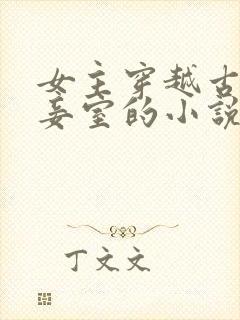 女主穿越古
妾室的小説
丁文文